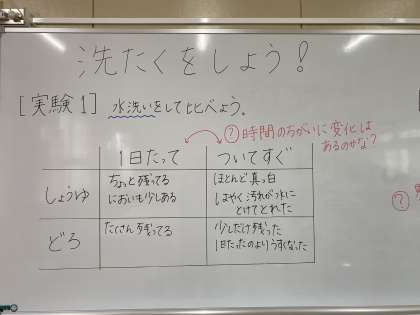 洗たくをしよう!
[実験1] 水洗いをして比べよう。
? 時間のちがいに変化は
あるのかな?
1日たって ついてすぐ
しょうゆ
ちょっと残ってる
においも少しある
ほとんど真っ白
はやく汚れが水に
とけてとれた
どろ
たくさん残ってる
少しだけ残った
1日たったのよりうすくなった
?